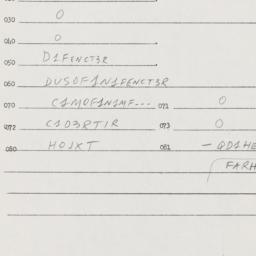 030 0
040 0
050 D1FENCT3R
060 DUSOF1N1FENCT3R
070 C1MOF1N1MF--- 071 0
072 C1D3RTIR 073 0
080 HOJXT 081 - QD1HE
FARH